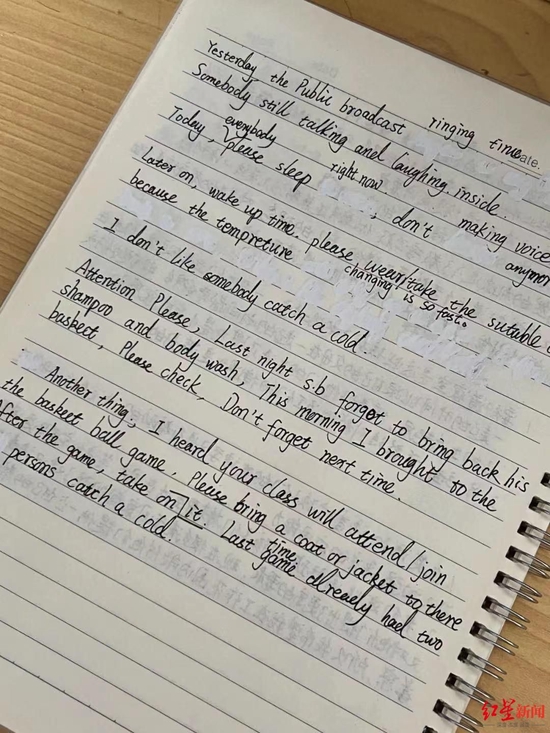 Date.
Yesterday, the Public broadcast ringing time
Somebody still talking and laughing inside.
Today, everybody please sleep right now, don't making voice anymor
Later on, wake up time. please wear/take the suitable
because the tempreture changing is so fast.
I don't like somebody catch a cold.
Attention Please, Last night s.b forgot to bring back his
shampoo and body wash, This morning I brought to the
basket, Please check, Don't forget next time.
Another thing, I heard your class will attend/join
the basket ball game, Please bring a coat or jacket to there
After the game, take on it. Last time game already had two
persons catch a cold.
红星新闻